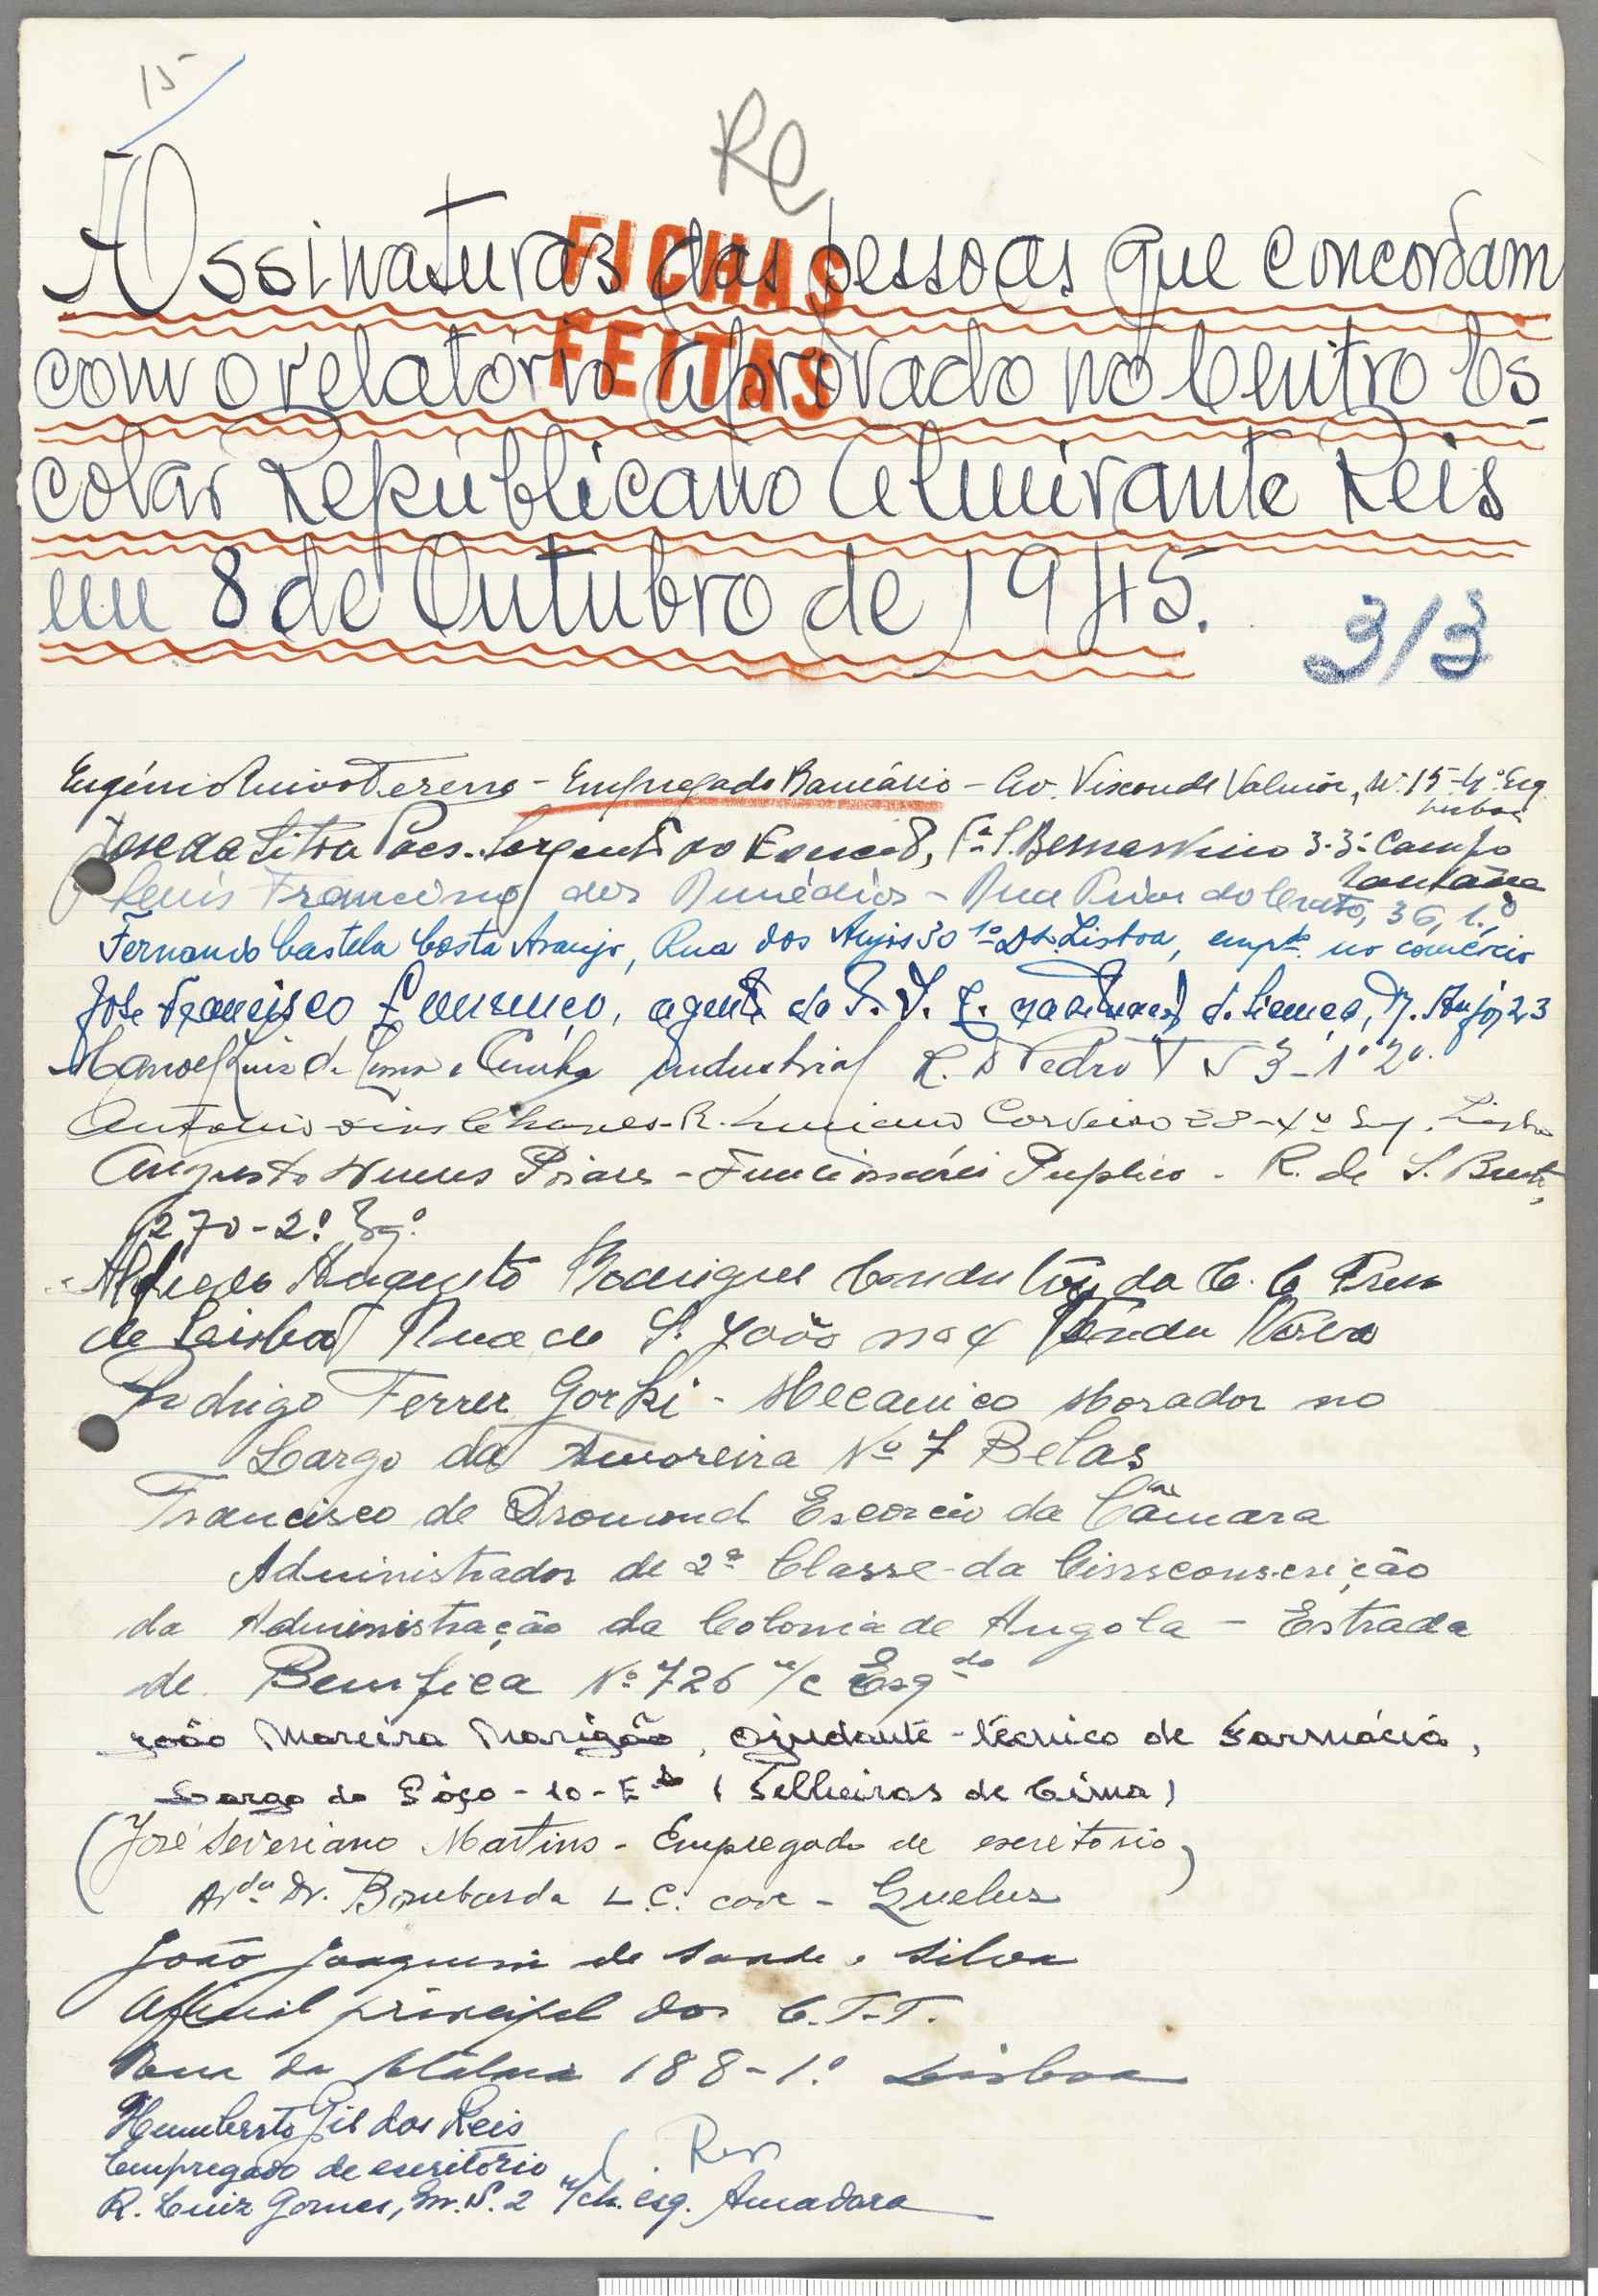 15
Re
Assinaturas das pessoas que concordam
FICHAS
com o relatório aprovado no Centro Es-
FEITAS
colar Republicano Almirante Reis
em 8 de Outubro de 1945.
3/3
Eugénio Ferreno - Empregado Bancário - Av. Visconde Valmôr, Nº 15-4º Esq.
Lisboa
José da Silva Paes. Sargento do Exercito, S. Bernardino 3-3º Campo
Santana
Luis Francisco dos Remédios - Rua Prior do Crato, 36, 1.º
Fernando Castela Costa Araujo, Rua dos Anjos 30 1º Dt. Lisboa, empdo. no comércio
José Francisco Lourenço, agente da R. Anjos, 23
Manoel Luiz de e Cunha industrial R. D Pedro V N 3-1º 2º.
Antonio Chaves - R. Luciano Cordeiro 28-4º Esq. Lisboa
Augusto Nunes - Funcionário Publico - R. de S. Bento,
270-2º Esq.º
Alfredo Augusto Rodrigues Condutor da C. C. Ferro
de Lisboa Rua de S. João nº 4 Venda Nova
Rodrigo Ferrer Gorki - Mecanico Morador no
Largo da Amoreira Nº 7 Belas
Francisco de Dromond Escorcio da Câmara
Administrador de 2ª Classe da Cirsconscrição
da Administração da Colonia de Angola - Estrada
de Benfica Nº 726 r/c Esqdo
João Moreira Marigão, Ajudante-técnico de Farmácia,
Largo do Pôço - 10 - Edo (Telheiras de Cima)
(José Severiano Martins - Empregado de escritorio)
Avda Dr. Bombarda L.C. cave - Queluz
João Joaquim de Sande e Silva
Oficial principal dos C.T.T.
Rua da 188-1.º Lisboa
Humberto Gil dos Reis
Empregado de escritório
R. Luiz Gomes, Em.S. 2 r/ch. esq. Amadora